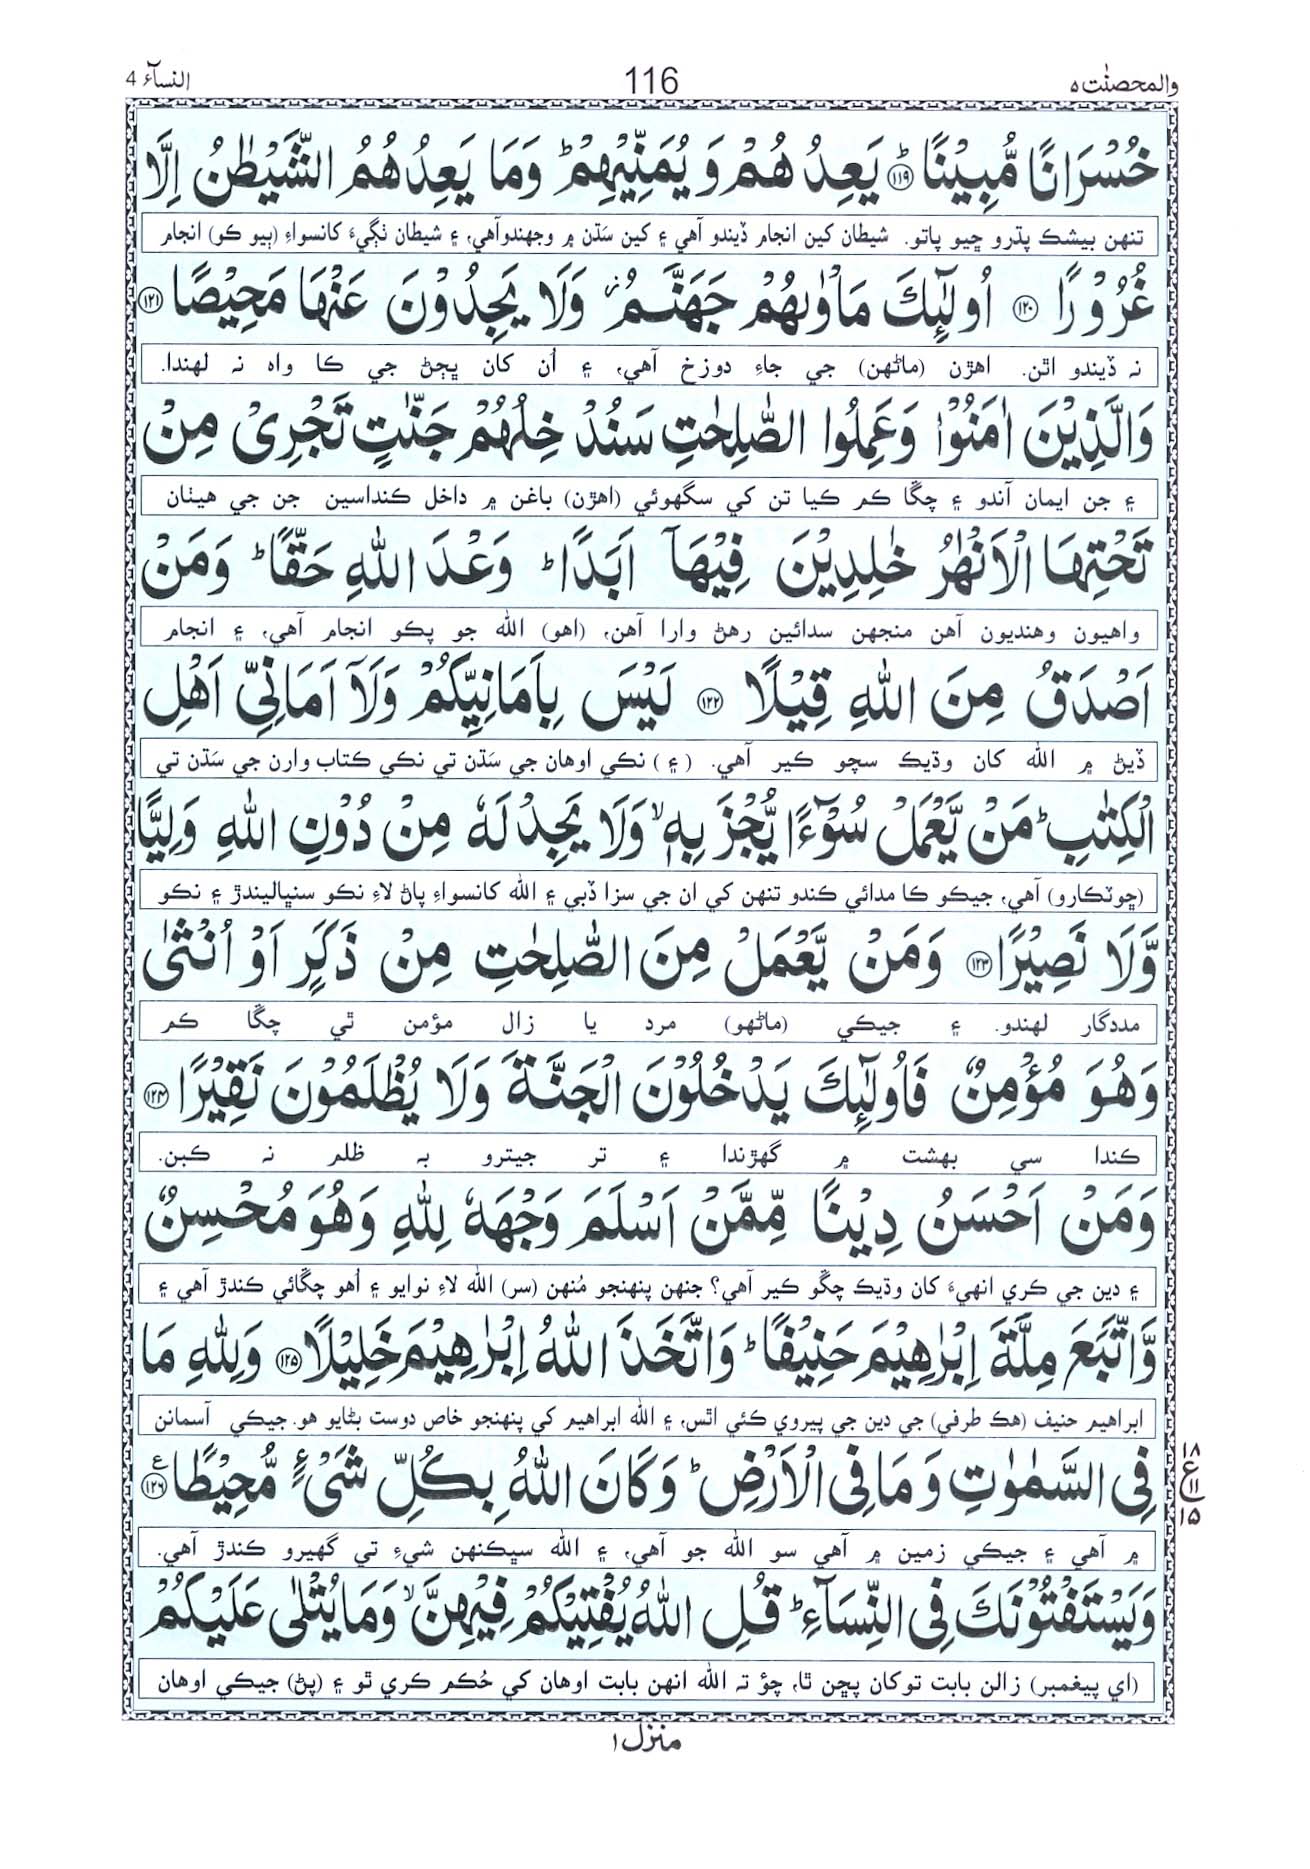 والمحصنٰت ٥
116
النسآء 4
خُسْرَانًا مُّبِيْنًا ؕ ﴿۱۱۹﴾ يَعِدُهُمْ وَ يُمَنِّيْهِمْ ؕ وَمَا يَعِدُهُمُ الشَّيْطٰنُ اِلَّا
تنهن بيشڪ پڌرو ڇيو پاتو. شيطان کين انجام ڏيندو آهي ۽ کين سَڌن ۾ وجهندوآهي، ۽ شيطان ٺڳيءَ کانسواءِ (ٻيو ڪو) انجام
غُرُوْرًا ﴿۱۲۰﴾ اُولٰٓئِكَ مَاْوٰىهُمْ جَهَنَّمُ ز وَلَا يَجِدُوْنَ عَنْهَا مَحِيْصًا ﴿۱۲۱﴾
نہ ڏيندو اٿن. اهڙن (ماڻهن) جي جاءِ دوزخ آهي، ۽ اُن کان ڀڄڻ جي ڪا واہ نہ لهندا.
وَالَّذِيْنَ اٰمَنُوْا وَعَمِلُوا الصّٰلِحٰتِ سَنُدْخِلُهُمْ جَنّٰتٍ تَجْرِيْ مِنْ
۽ جن ايمان آندو ۽ چڱا ڪم ڪيا تن کي سگهوئي (اهڙن) باغن ۾ داخل ڪنداسين جن جي هيٺان
تَحْتِهَا الْاَنْهٰرُ خٰلِدِيْنَ فِيْهَآ اَبَدًا ؕ وَعْدَ اللّٰهِ حَقًّا ؕ وَمَنْ
واهيون وهنديون آهن منجهن سدائين رهڻ وارا آهن، (اهو) الله جو پڪو انجام آهي، ۽ انجام
اَصْدَقُ مِنَ اللّٰهِ قِيْلًا ﴿۱۲۲﴾ لَيْسَ بِاَمَانِيِّكُمْ وَلَآ اَمَانِيِّ اَهْلِ
ڏيڻ ۾ الله کان وڌيڪ سچو ڪير آهي. (۽) نڪي اوهان جي سَڌن تي نڪي ڪتاب وارن جي سَڌن تي
الْكِتٰبِ ؕ مَنْ يَّعْمَلْ سُوْٓءًا يُّجْزَ بِهٖ ۙ وَلَا يَجِدْ لَهٗ مِنْ دُوْنِ اللّٰهِ وَلِيًّا
(ڇوٽڪارو) آهي، جيڪو ڪا مدائي ڪندو تنهن کي ان جي سزا ڏبي ۽ الله کانسواءِ پاڻ لاءِ نڪو سنڀاليندڙ ۽ نڪو
وَّلَا نَصِيْرًا ﴿۱۲۳﴾ وَمَنْ يَّعْمَلْ مِنَ الصّٰلِحٰتِ مِنْ ذَكَرٍ اَوْ اُنْثٰى
مددگار لهندو. ۽ جيڪي (ماڻهو) مرد يا زال مؤمن ٿي چڱا ڪم
وَهُوَ مُؤْمِنٌ فَاُولٰٓئِكَ يَدْخُلُوْنَ الْجَنَّةَ وَلَا يُظْلَمُوْنَ نَقِيْرًا ﴿۱۲۴﴾
ڪندا سي بهشت ۾ گهڙندا ۽ تر جيترو بہ ظلم نہ ڪبن.
وَمَنْ اَحْسَنُ دِيْنًا مِّمَّنْ اَسْلَمَ وَجْهَهٗ لِلّٰهِ وَهُوَ مُحْسِنٌ
۽ دين جي ڪري انهيءَ کان وڌيڪ چڱو ڪير آهي؟ جنهن پنهنجو مُنهن (سر) الله لاءِ نوايو ۽ اُهو چڱائي ڪندڙ آهي ۽
وَّاتَّبَعَ مِلَّةَ اِبْرٰهِيْمَ حَنِيْفًا ؕ وَاتَّخَذَ اللّٰهُ اِبْرٰهِيْمَ خَلِيْلًا ﴿۱۲۵﴾ وَلِلّٰهِ مَا
ابراهيم حنيف (هڪ طرفي) جي دين جي پيروي ڪئي اٿس، ۽ الله ابراهيم کي پنهنجو خاص دوست بڻايو هو. جيڪي آسمانن
فِي السَّمٰوٰتِ وَمَا فِي الْاَرْضِ ؕ وَكَانَ اللّٰهُ بِكُلِّ شَيْءٍ مُّحِيْطًا ﴿۱۲۶﴾ ع
۱۸
ع ۱۱
۱۵
۾ آهي ۽ جيڪي زمين ۾ آهي سو الله جو آهي، ۽ الله سڀڪنهن شيءِ تي گهيرو ڪندڙ آهي.
وَيَسْتَفْتُوْنَكَ فِي النِّسَآءِ ؕ قُلِ اللّٰهُ يُفْتِيْكُمْ فِيْهِنَّ ۙ وَمَا يُتْلٰى عَلَيْكُمْ
(اي پيغمبر) زالن بابت توکان پڇن ٿا، چؤ تہ الله انهن بابت اوهان کي حُڪم ڪري ٿو ۽ (پڻ) جيڪي اوهان
منزل ۱